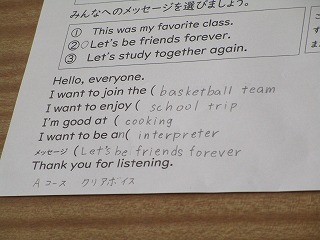 みんなへのメッセージを選びましょう。
① This was my favorite class.
②○ Let's be friends forever.
③ Let's study together again.
Hello, everyone.
I want to join the ( basketball team
I want to enjoy ( school trip
I'm good at ( cooking
I want to be an( interpreter
メッセージ (Let's be friends forever
Thank you for listening.
Aコース クリアボイス